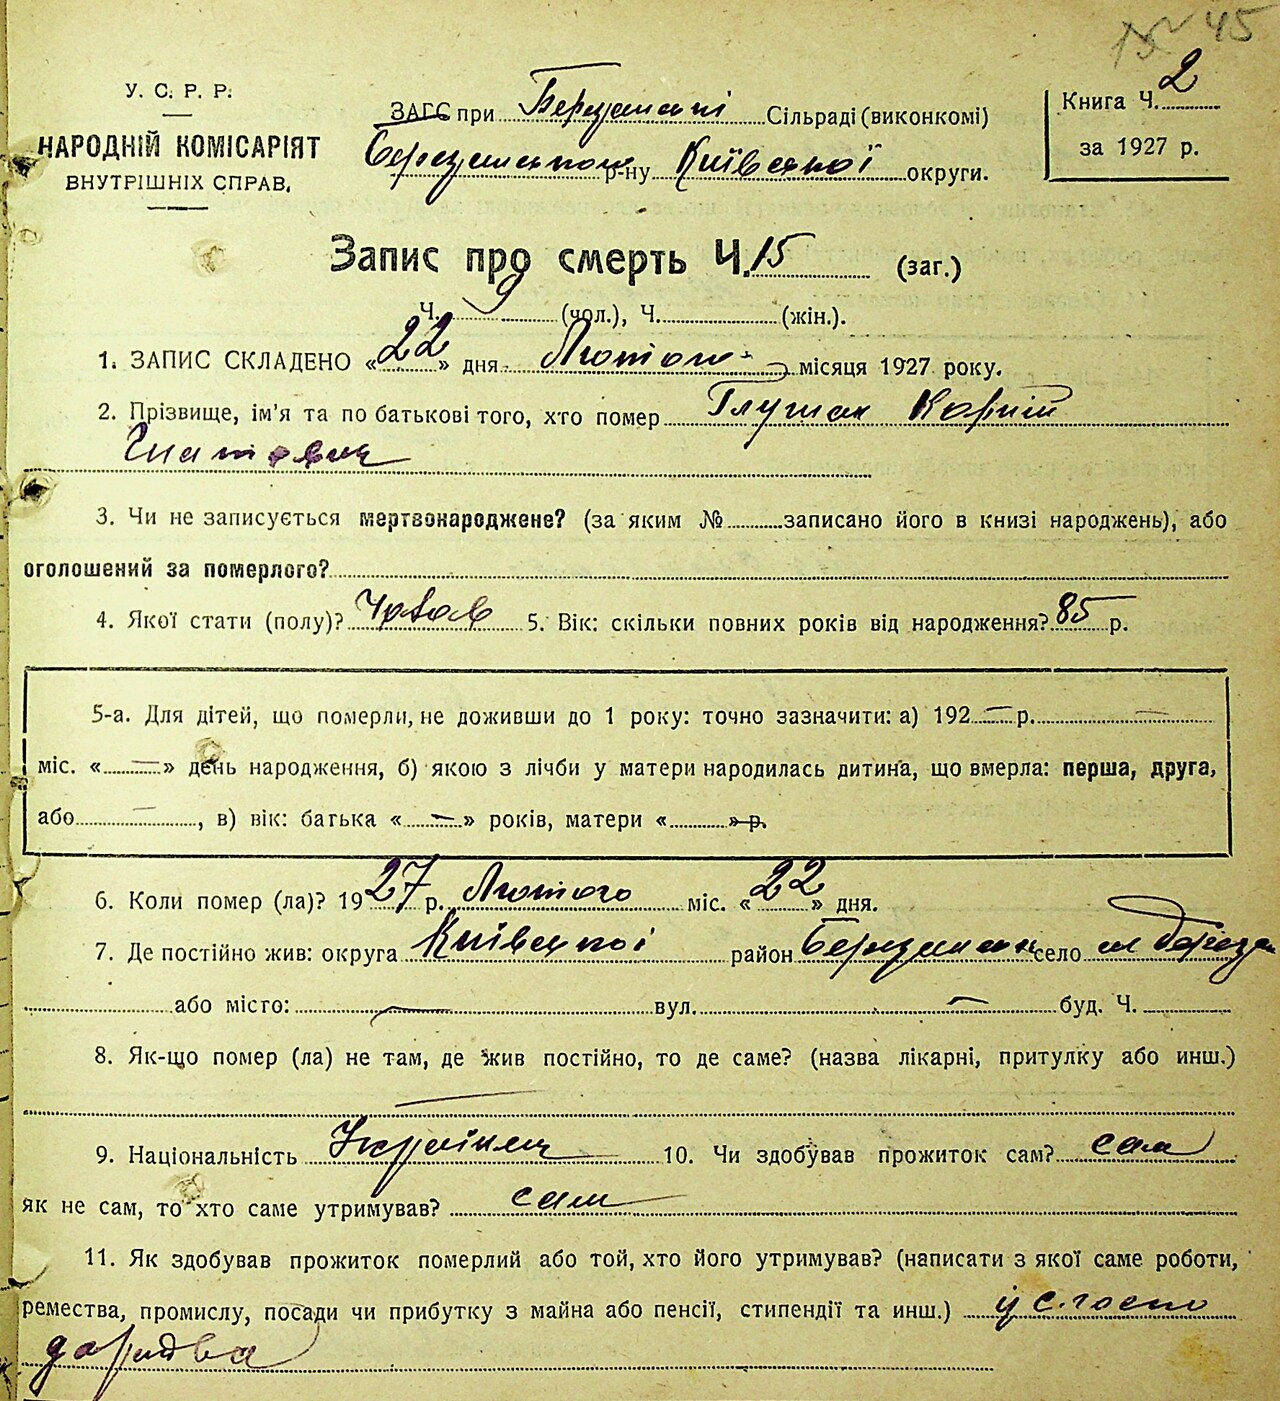 45
У. С. Р. Р.
НАРОДНІЙ КОМІСАРІЯТ
ВНУТРІШНІХ СПРАВ.
ЗАГС при Березанскі Сільраді (виконкомі)
р-ну Київської округи.
Книга Ч. 2
за 1927 р.
Запис про смерть Ч. 15 (заг.)
Ч. 9 (чол.), Ч. (жін.).
1. ЗАПИС СКЛАДЕНО «22» дня Лютого місяця 1927 року.
2. Прізвище, ім'я та по батькові того, хто помер Глушак Корній
Гнатович
3. Чи не записується мертвонароджене? (за яким № записано його в книзі народжень), або
оголошений за померлого?
4. Якої стати (полу)? Чолов 5. Вік: скільки повних років від народження? 85 р.
5-а. Для дітей, що померли, не доживши до 1 року: точно зазначити: а) 192 — р. —
міс. «—» день народження, б) якою з лічби у матери народилась дитина, що вмерла: перша, друга,
або —, в) вік: батька «—» років, матери « » р.
6. Коли помер (ла)? 1927 р. Лютого міс. «22» дня.
7. Де постійно жив: округа Київської район село м Березань
або місто: — вул. — буд. Ч.
8. Як-що помер (ла) не там, де жив постійно, то де саме? (назва лікарні, притулку або инш.)
—
9. Національність Українец 10. Чи здобував прожиток сам? сам
як не сам, то хто саме утримував? сам
11. Як здобував прожиток померлий або той, хто його утримував? (написати з якої саме роботи,
ремества, промислу, посади чи прибутку з майна або пенсії, стипендії та инш.) із с. госпо
дарства